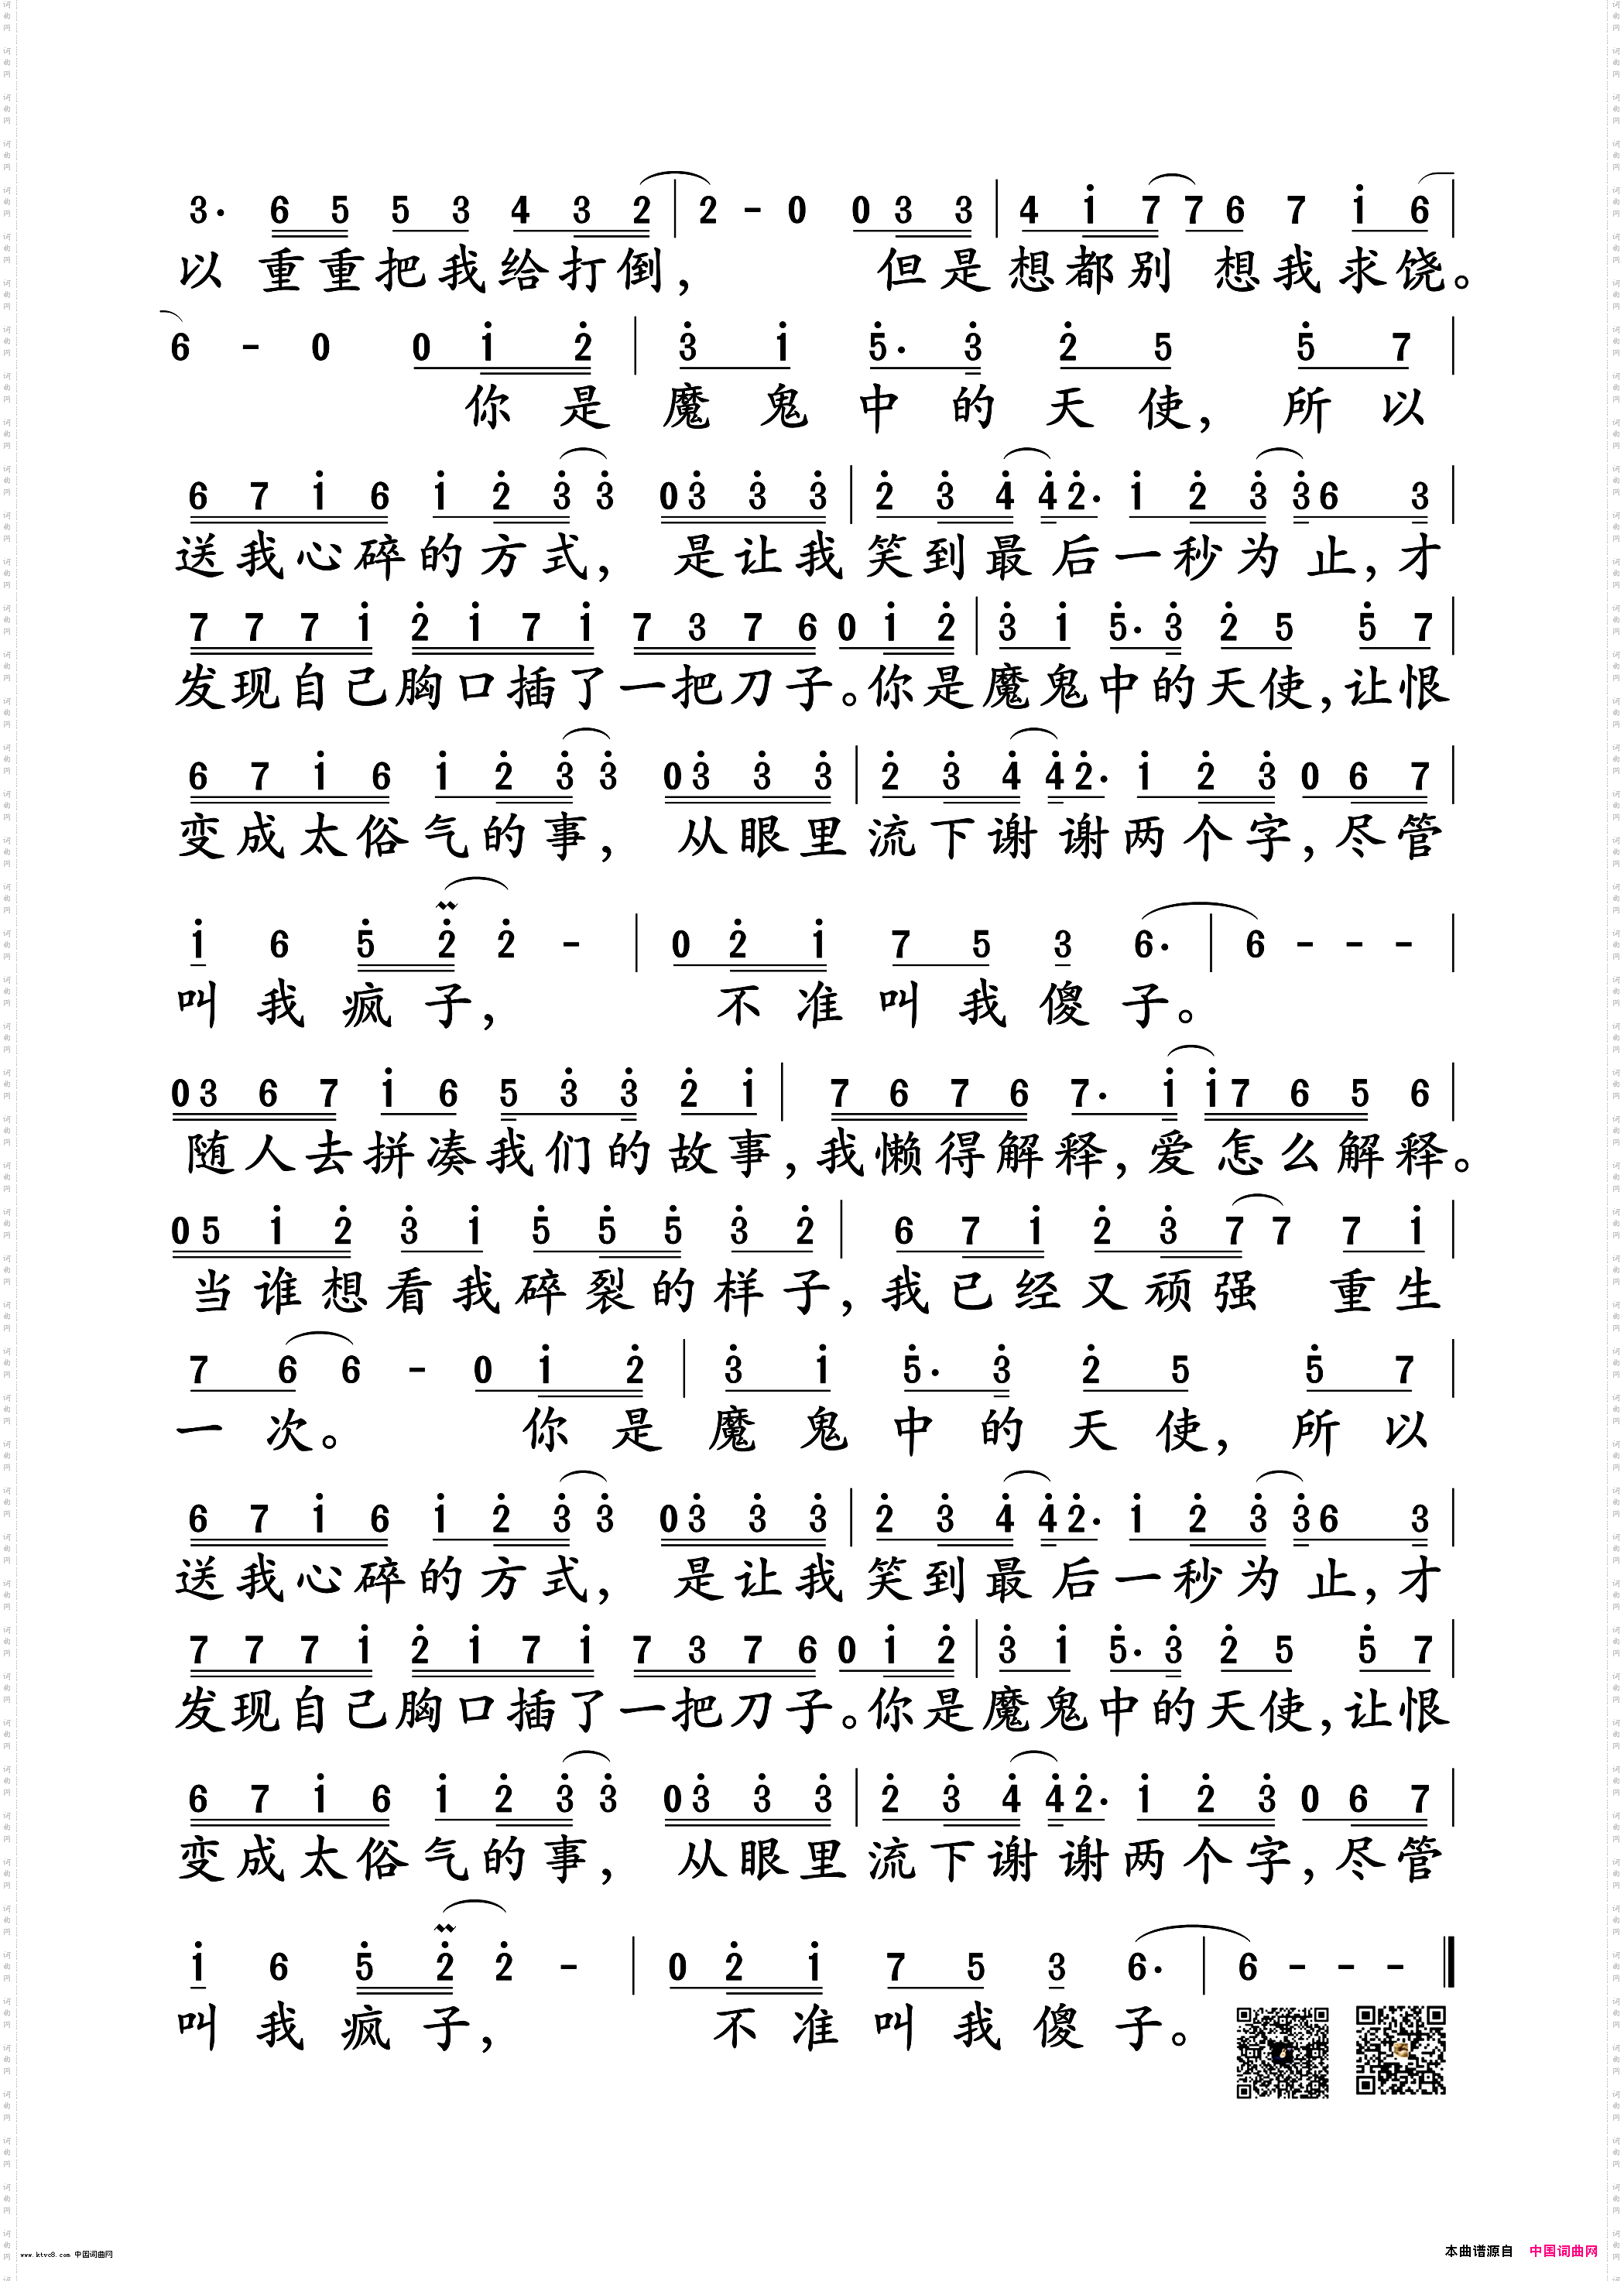 3· 6 5 5 3 4 3 2 | 2 - 0 0 3 3 | 4 1 7 7 6 7 1 6 |
以重重把我给打倒, 但是想都别想我求饶。
6 - 0 0 1 2 | 3 1 5· 3 2 5 5 7 |
你是魔鬼中的天使, 所以
6 7 1 6 1 2 3 3 0 3 3 3 | 2 3 4 4 2· 1 2 3 3 6 3 |
送我心碎的方式, 是让我笑到最后一秒为止, 才
7 7 7 1 2 1 7 1 7 3 7 6 0 1 2 | 3 1 5· 3 2 5 5 7 |
发现自己胸口插了一把刀子。你是魔鬼中的天使, 让恨
6 7 1 6 1 2 3 3 0 3 3 3 | 2 3 4 4 2· 1 2 3 0 6 7 |
变成太俗气的事, 从眼里流下谢谢两个字, 尽管
1 6 5 2 2 - | 0 2 1 7 5 3 6· | 6 - - - |
叫我疯子, 不准叫我傻子。
0 3 6 7 1 6 5 3 3 2 1 | 7 6 7 6 7· 1 1 7 6 5 6 |
随人去拼凑我们的故事, 我懒得解释, 爱怎么解释。
0 5 1 2 3 1 5 5 5 3 2 | 6 7 1 2 3 7 7 7 1 |
当谁想看我碎裂的样子, 我已经又顽强 重生
7 6 6 - 0 1 2 | 3 1 5· 3 2 5 5 7 |
一次。 你是魔鬼中的天使, 所以
6 7 1 6 1 2 3 3 0 3 3 3 | 2 3 4 4 2· 1 2 3 3 6 3 |
送我心碎的方式, 是让我笑到最后一秒为止, 才
7 7 7 1 2 1 7 1 7 3 7 6 0 1 2 | 3 1 5· 3 2 5 5 7 |
发现自己胸口插了一把刀子。你是魔鬼中的天使, 让恨
6 7 1 6 1 2 3 3 0 3 3 3 | 2 3 4 4 2· 1 2 3 0 6 7 |
变成太俗气的事, 从眼里流下谢谢两个字, 尽管
1 6 5 2 2 - | 0 2 1 7 5 3 6· | 6 - - - ||
叫我疯子, 不准叫我傻子。
www.ktvc8.com 中国词曲网
本曲谱源自 中国词曲网